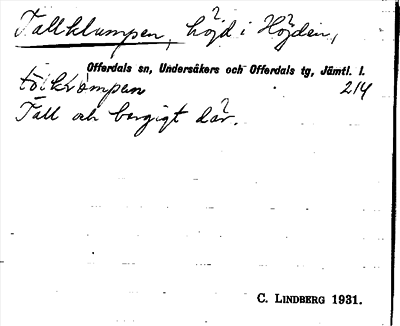 Tallklumpen, höjd i Höjden,
Offerdals sn, Undersåkers och Offerdals tg, Jämtl. l.
214
Tall och bergigt där.
C. LINDBERG 1931.